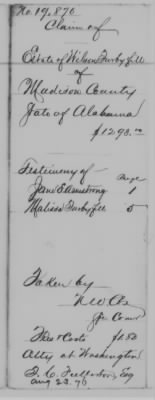 No. 19,876
Claim of
Estate of Wilson Furbyfill
of
Madison County
State of Alabama
$1298.00
Testimony of Page
Jane E. Armstrong 1
Malissa Furbyfill 5
Taken by
Jr Comr
Fees & Costs $1.80
Atty at Washington
Esq
Aug 23. 76